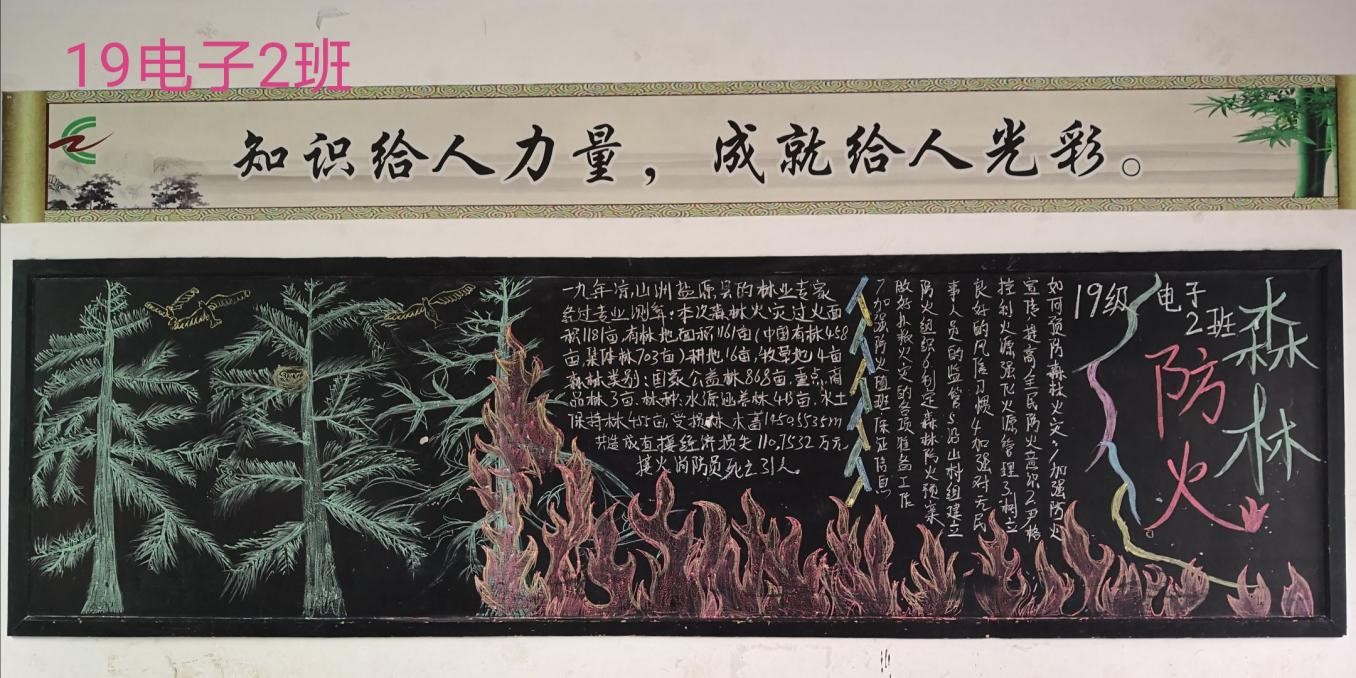 19电子2班
知识给人力量，成就给人光彩。
森林
防火
19级
电子
2班
如何预防森林火灾，1加强防火
宣传，提高全民防火意识2严格
控制火源强化火源管理3树立
良好的风信习惯4加强对无民
事人员的监管5沿山村组建立
防火组织6制定森林防火预案
做好扑救火灾的各项准备工作
7加强防火值班保证信息
一九年凉山洲盐源县的林业专家
经过专业测算，本次森林火灾过火面
积1181亩，有林地面积1161亩（中国有林458
亩，集体林703亩）耕地16亩，牧草地4亩
森林类别：国家公益林868亩，重点，商
品林3亩，林种：水源涵养林413亩，水土
保持林455亩，受损林木蓄14505535m
共造成直接经济损失110.7532万元
接火消防员死亡31人。